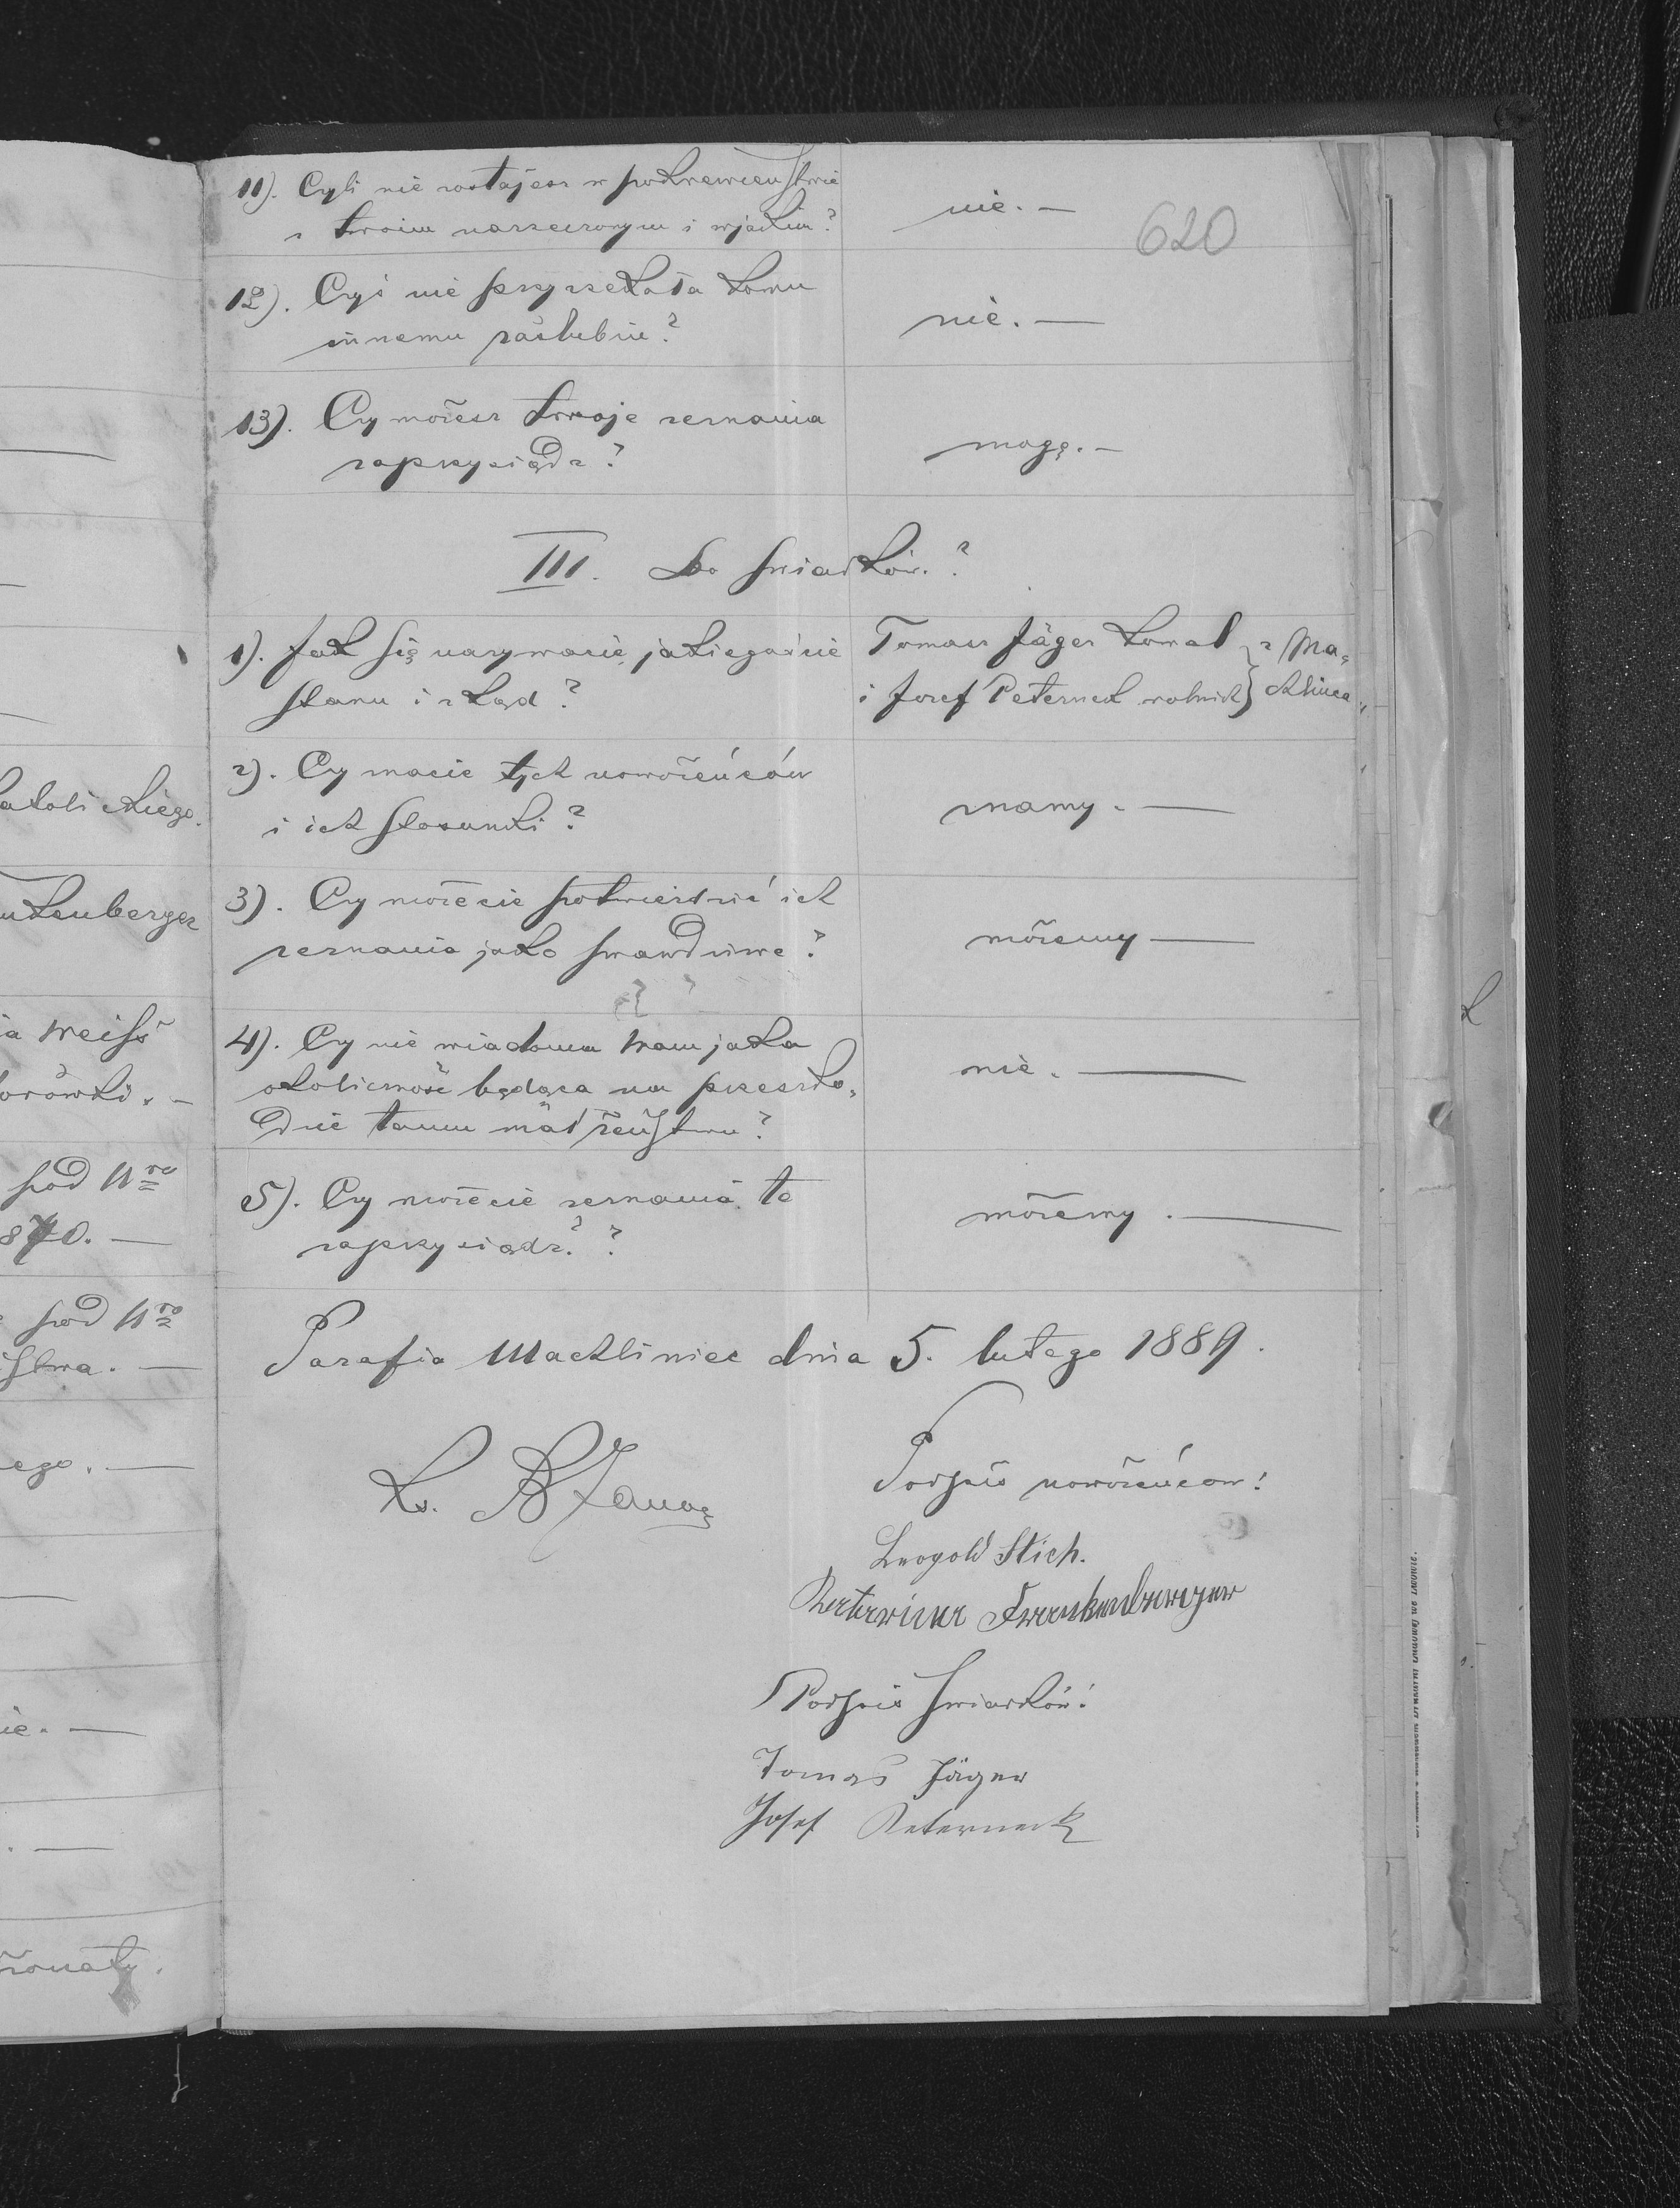 11). Czyli nie zostajesz w pokrewieństwie
z twoim narzeczonym i w jakim?
nie. —
620
12). Czyś nie przyrzekała komu
innemu zaślubin?
nie. —
13). Czy możesz twoje zeznania
zaprzysiądz?
mogę. —
III. Do świadków.?
1). Jak się nazywacie, jakiegoście
stanu i zkąd?
Tomasz Jäger kowal
i Josef Peternek rolnik } z Ma=
chlińca
2). Czy znacie tych nowożeńców
i ich stosunki?
znamy. —
3). Czy możecie potwierdzić ich
zeznania jako prawdziwe?
możemy —
4). Czy nie wiadoma Wam jaka
okoliczność będąca na przeszko=
dzie temu małżeństwu?
nie. —
5). Czy możecie zeznania te
zaprzysiądz.??
możemy. —
Parafia Machliniec dnia 5. lutego 1889.
Ks.
Podpis nowożeńców:
Leopold Stich.
Katarina Frankenberger
Podpis świadków:
Tomas Jäger
Josef Peterneck
atolickiego.
nkenberger
ia Weiſs
orówki. —
pod Nro
870. —
pod Nro
ństwa. —
ego. —
ie. —
żonaty.